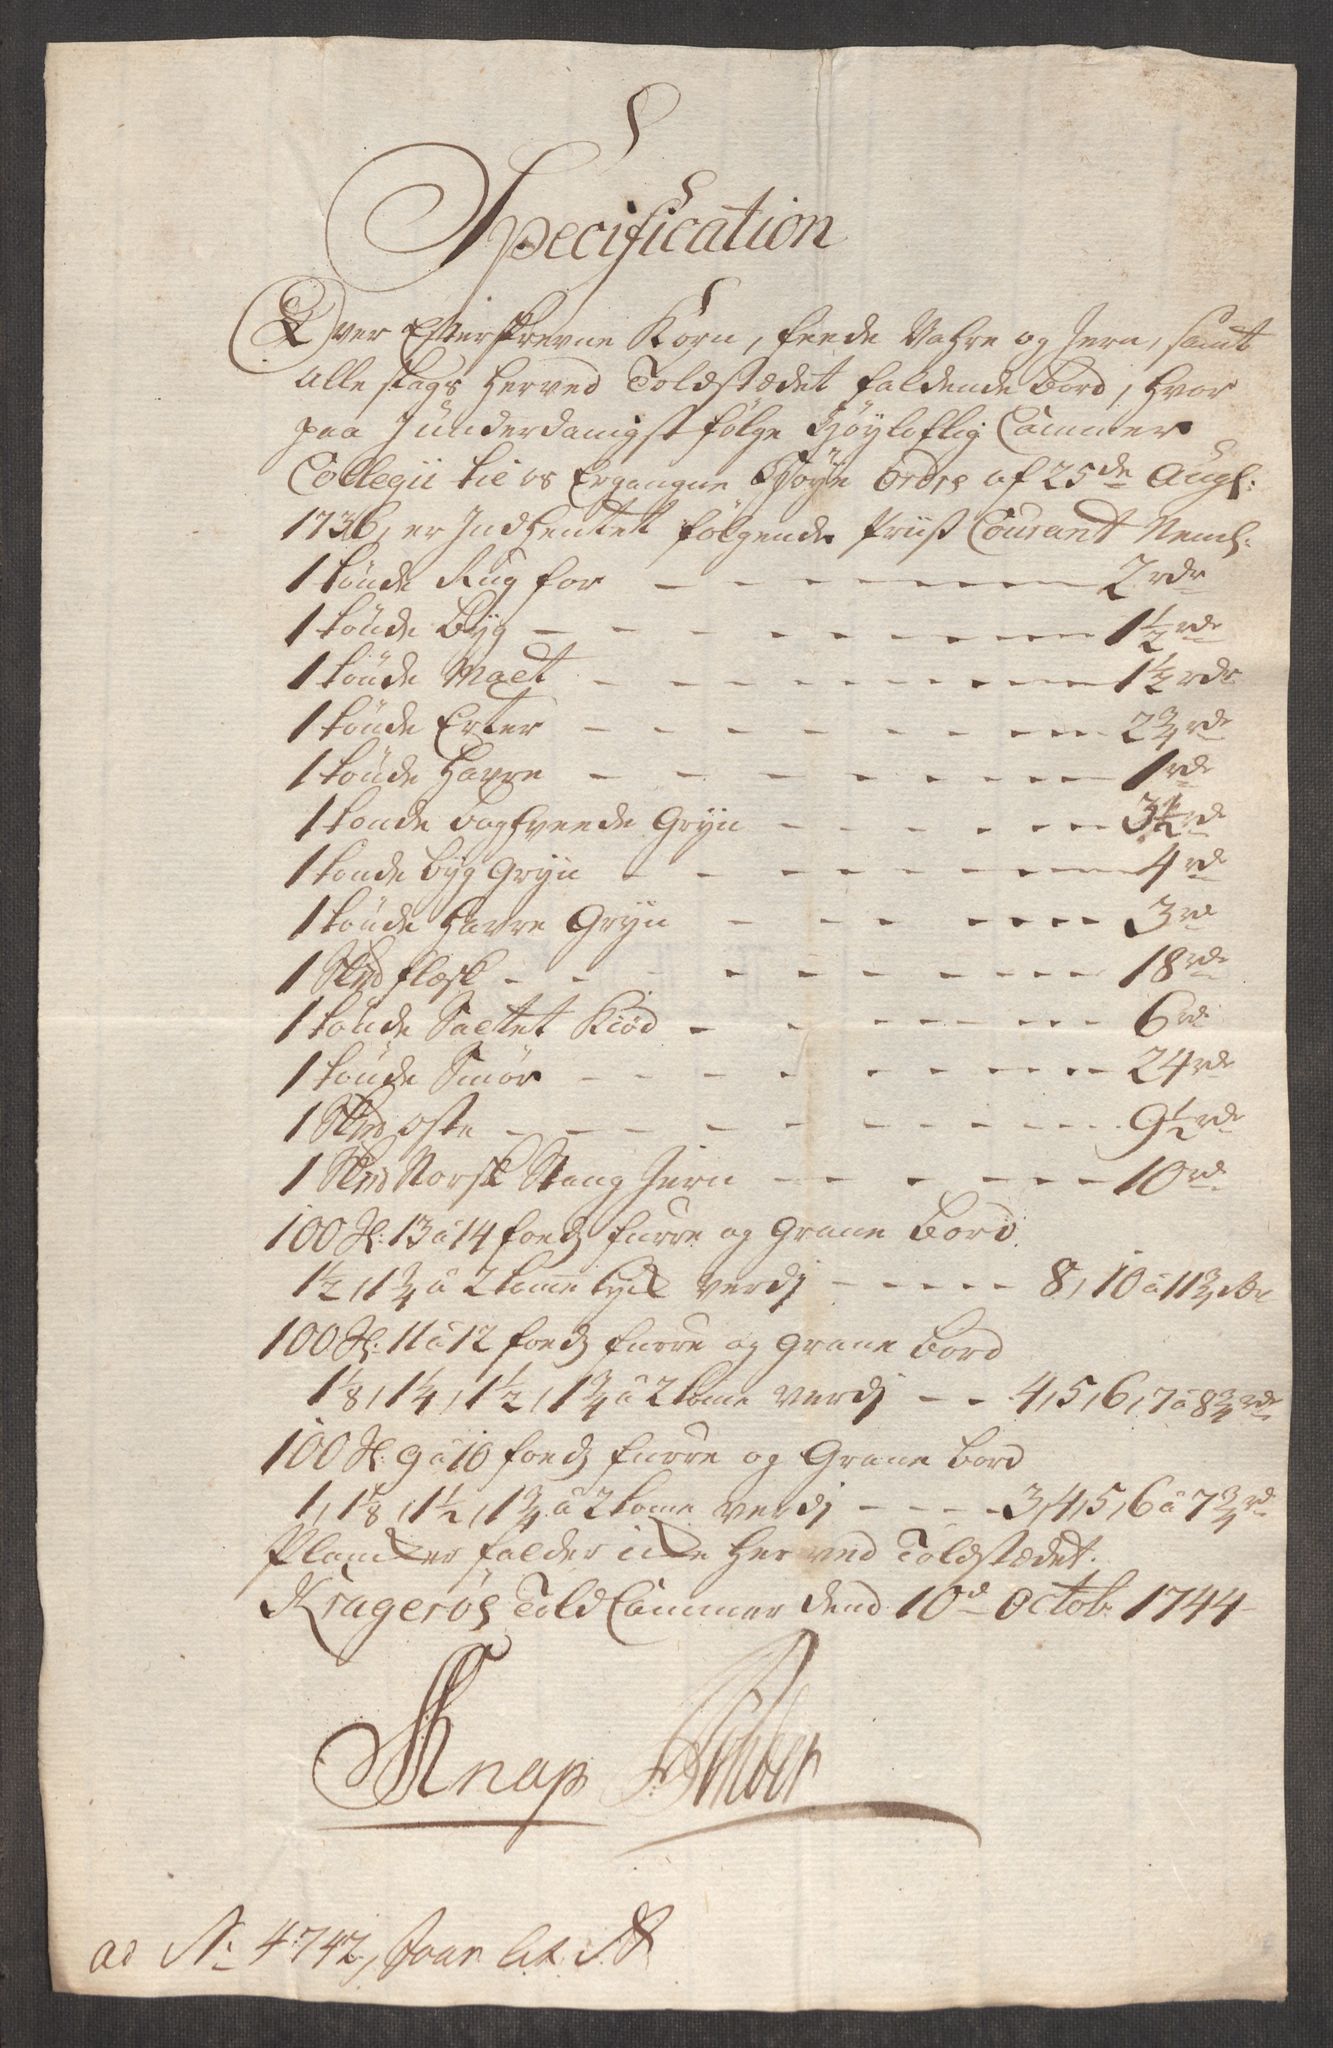 Specification
Over Efterskrevne Korn, feede Vahre og Jern, samt
alle slags herved Toldstædet faldende Bord, hvor
paa J underdanigst følge Høyloflig Cammer
Collegii til os Ergangne Høye Ordre af 25de Augs:
1736, er Jndhentet følgende Priis Courant Neml:
1 tønde Rug for - - - 2 rdr
1 tønde Byg - - - 1½ rdr
1 tønde Malt - - - 1½ rdr
1 tønde Erter - - - 2¾ rdr
1 tønde Havre - - - 1 rdr
1 tønde Boghveede Gryn - - - 3½ rdr
1 tønde Byg Gryn - - - 4 rd
1 tønde Havre Gryn - - - 3 rd
1 Skpd flæsk - - - 18 rdr
1 tønde Saltet Kiød - - - 6 rd
1 tønde Smør - - - 24 rdr
1 Skpd Oste - - - 9½ rdr
1 Skpd Norsk Stang Jern - - - 10 rd
100 St: 13 à 14 foeds furre og Grane Bord
1½, 1¾ à 2 tomme tyk verdj - - - 8, 10 à 11¾ rdr
100 St: 11 à 12 foeds furre og Grane Bord
1⅛, 1¼, 1½, 1¾ à 2 tome verdj - - 4, 5, 6, 7 à 8¾ rdr
100 St: 9 à 10 foeds furre og Grane Bord
1, 1⅛, 1½, 1¾ à 2 tome verdj - - - 3, 4, 5, 6 à 7¾ rd
Plancker falder icke her ved Toldstædet.
Kragerøes Told Cammer dend 10d Octob: 1744
Knap
ad No 4742, Jour lit